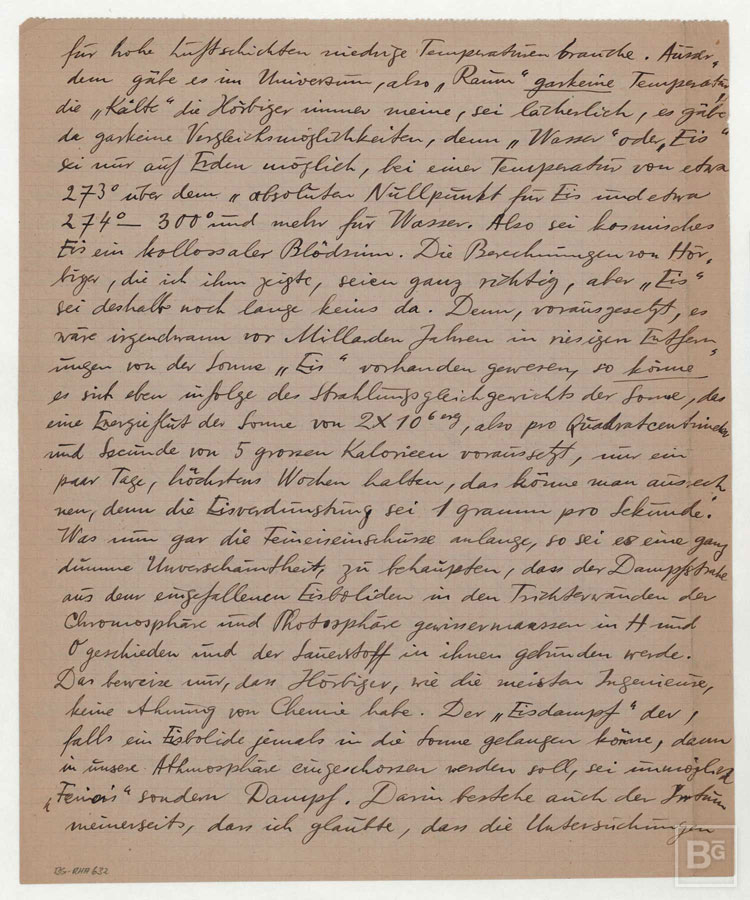 für hohe Luftschichten niedrige Temperaturen brauche. Ausser-
dem gäbe es im Universum, also „Raum“ garkeine Temperatur,
die „Kälte“ die Hörbiger immer meine, sei lächerlich, es gäbe
da garkeine Vergleichsmöglichkeiten, denn „Wasser“ oder „Eis“
sei nur auf Erden möglich, bei einer Temperatur von etwa
273° über dem „absoluten Nullpunkt für Eis und etwa
274°— 300° und mehr für Wasser. Also sei kosmisches
Eis ein kollossaler Blödsinn. Die Berechnungen von Hör-
biger, die ich ihm zeigte, seien ganz richtig, aber „Eis“
sei deshalb noch lange keins da. Denn, vorausgesetzt, es
wäre irgendwann vor Milliarden Jahren in riesigen Entfern-
ungen von der Sonne „Eis“ vorhanden gewesen, so könne
es sich eben infolge des Strahlungsgleichgewichts der Sonne, das
eine Energieflut der Sonne von 2X10⁶ erg, also pro Quadratcentimeter
und Secunde von 5 grossen Kalorieen voraussetzt, nur ein
paar Tage, höchstens Wochen halten, das könne man ausrech
nen, denn die Eisverdunstung sei 1 gramm pro Sekunde.
Was nun gar die Feineiseinschüsse anlange, so sei es eine ganz
dumme Unverschämtheit, zu behaupten, dass der Dampfstrahl
aus dem eingefallenen Eisboliden in den Trichterwänden der
Chromosphäre und Photosphäre gewissermaassen in H und
O geschieden und der Sauerstoff in ihnen gebunden werde.
Das beweise nur, dass Hörbiger, wie die meisten Ingenieure,
keine Ahnung von Chemie habe. Der „Eisdampf“ der,
falls ein Eisbolide jemals in die Sonne gelangen könne, dann
in unsere Athmosphäre eingeschossen werden soll, sei unmöglich
„Feineis“ sondern Dampf. Darin bestehe auch der Irrtum
meinerseits, dass ich glaubte, dass die Untersuchungen
BG-RHA 632
BG